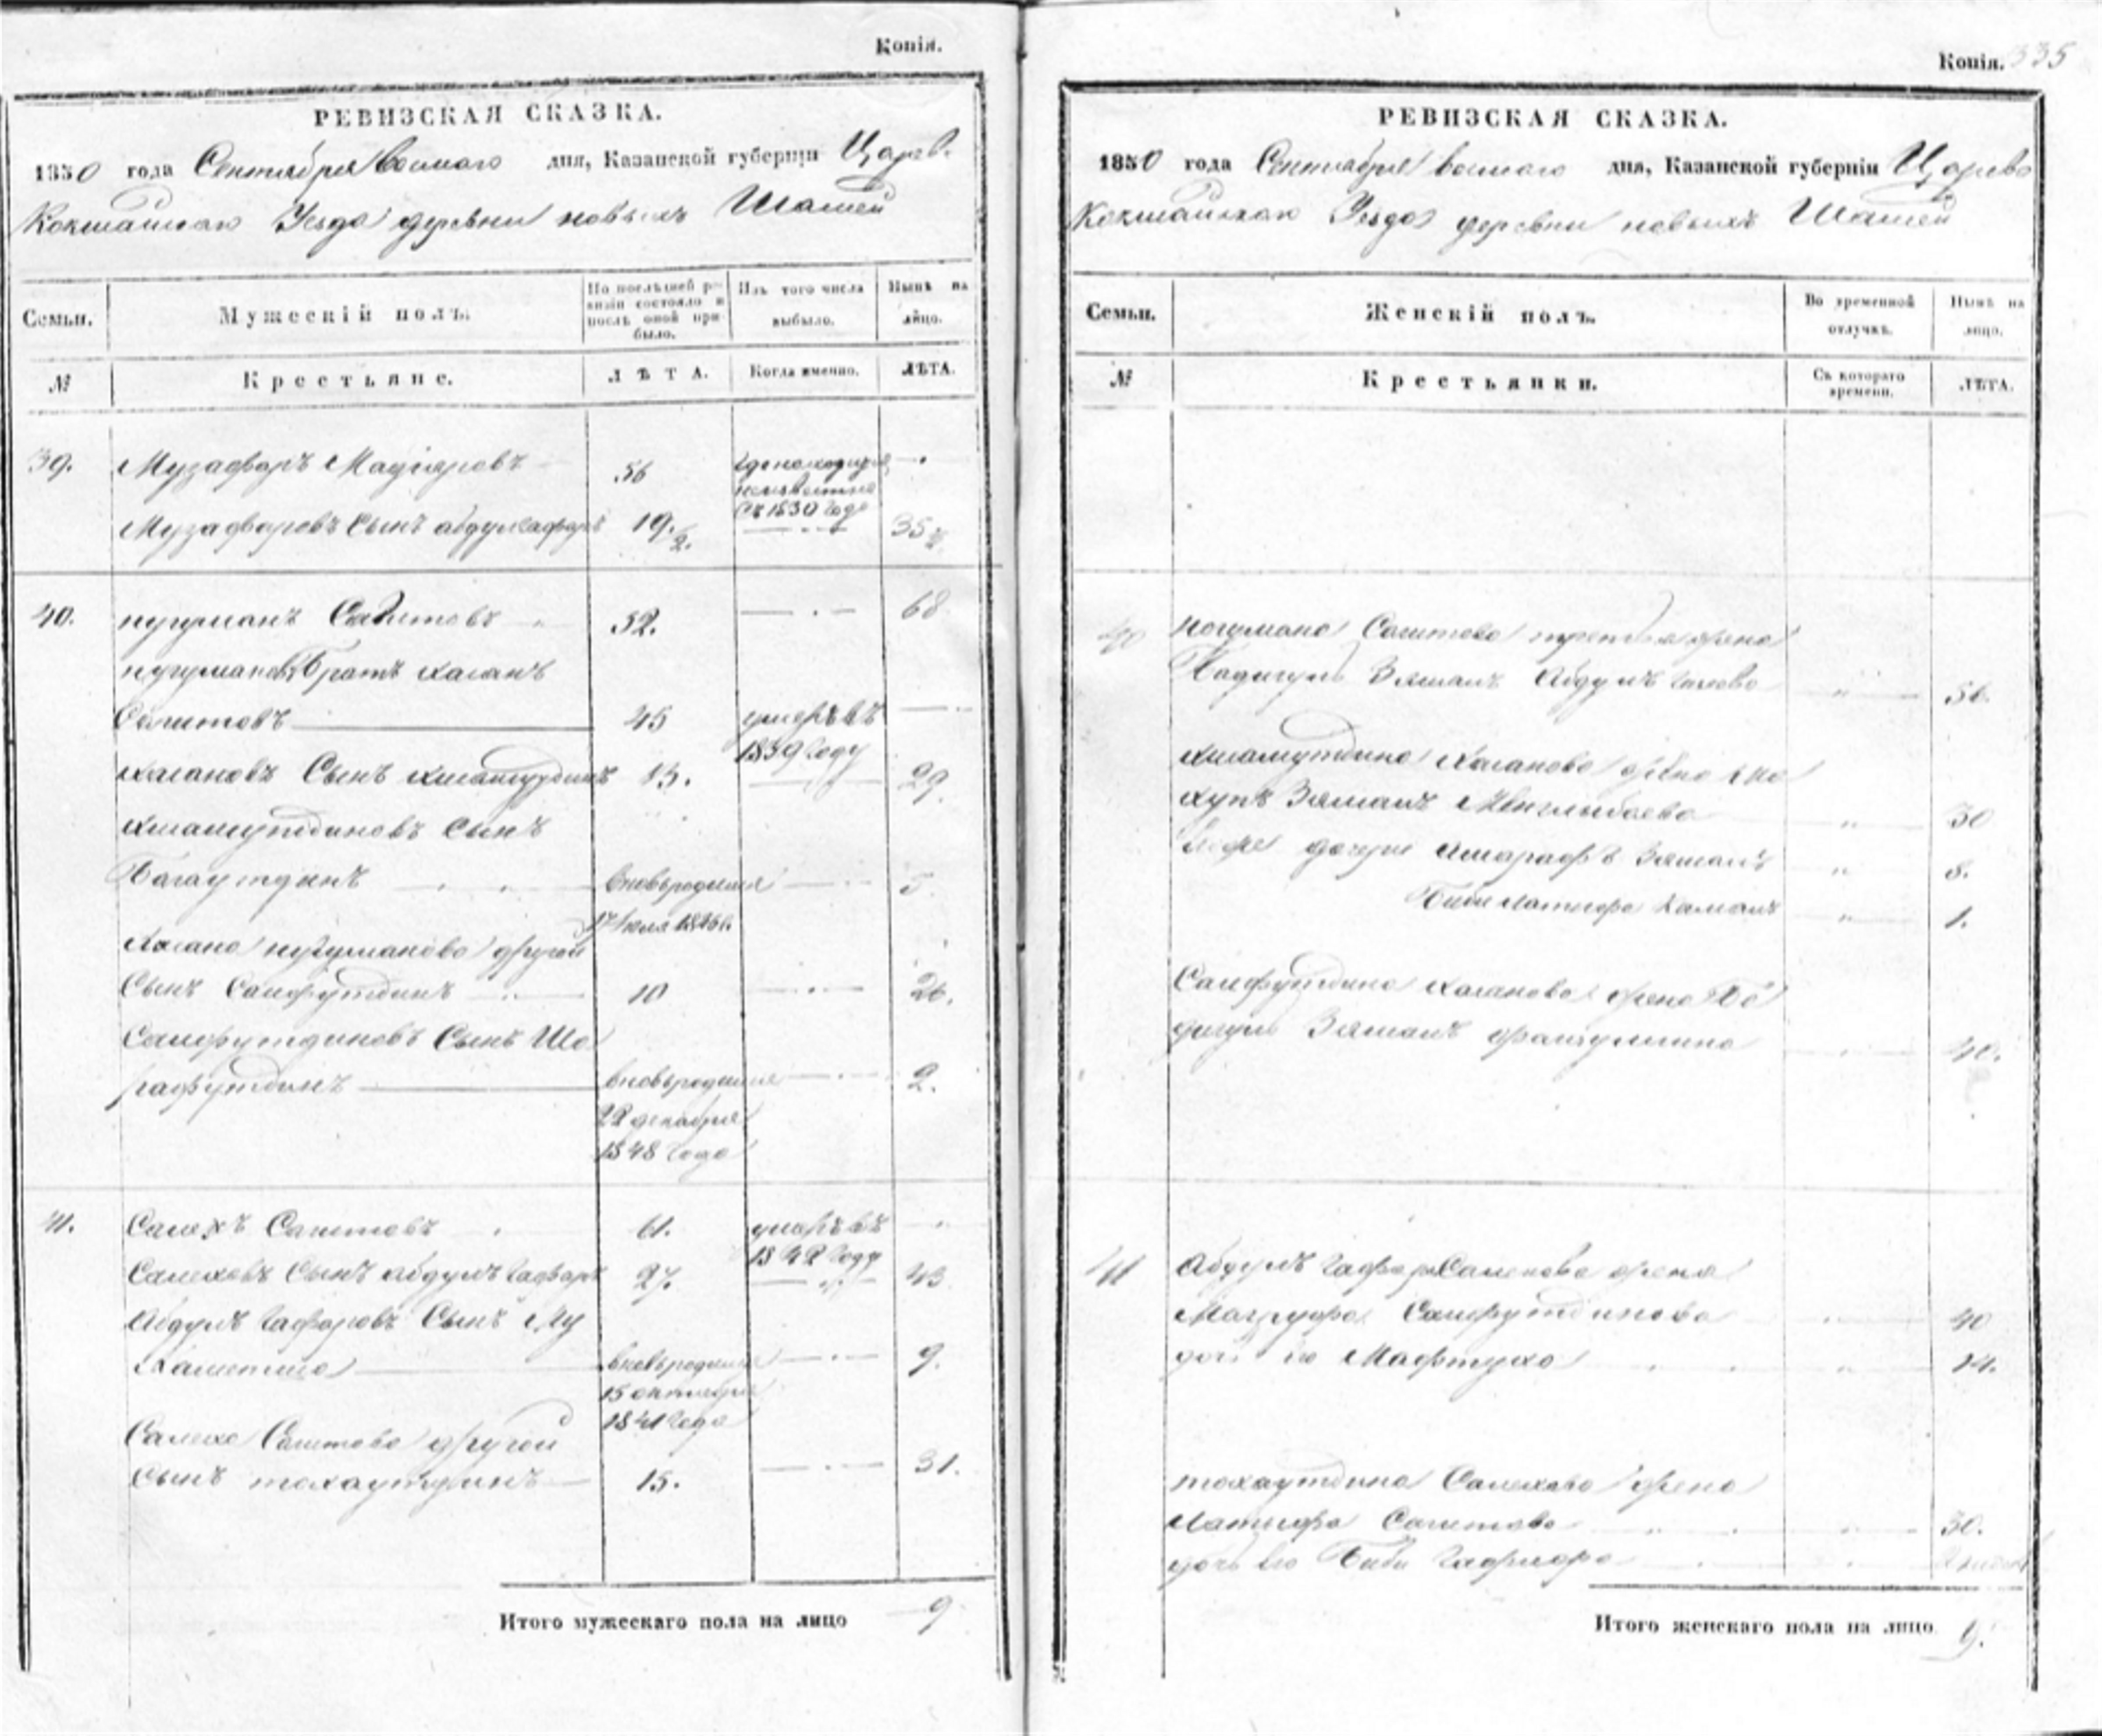 Копія.
РЕВИЗСКАЯ СКАЗКА.
1850 года Сентября восмаго дня, Казанской губерніи Царево
Кокшайскаго Уезда деревни новыхъ Шашей
Семьи. Мужескій полъ. По послѣдней ревизіи состояло и послѣ оной прибыло. Изъ того числа выбыло. Нынѣ на лицо.
№ Крестьяне. ЛѢТА. Когда именно. ЛѢТА.
39. Музафаръ Мадіяровъ 56
неизвестно
съ 1830 года
Музафаровъ Сынъ абдулгафаръ 19 1/2. 35 1/2
40. нугуманъ Сагитовъ 52. 68
нугумановъ Братъ хасанъ
Сагитовъ 45 умеръ въ
1839 году
хасановъ Сынъ хисамутдинъ 13. 29
хисамутдиновъ Сынъ
Багаутдинъ вновьрожденъ 5.
17 Июля
Хасана нугуманова другой
Сынъ Саифутдинъ 10 26.
Саифутдиновъ Сынъ Ша
рафутдинъ вновьрожденъ 2.
22 декабря
1848 года
41. Салехъ Сагитовъ 61. умеръ въ
1842 году
Салеховъ Сынъ абдулъ гафаръ 27. 43
Абдулъ гафаровъ Сынъ Му
хаметша вновьрожденъ 9.
15 октября
1841 года
Салеха Сагитова другой
Сынъ тохаутдинъ 15. 31.
Итого мужескаго пола на лицо 9
Копія. 335
РЕВИЗСКАЯ СКАЗКА.
1850 года Сентября восмаго дня, Казанской губерніи Царево
Кокшайскаго Уезда деревни новыхъ Шашей
Семьи. Женскій полъ. Во временной отлучкѣ. Нынѣ на лицо.
№ Крестьянки. Съ котораго времени. ЛѢТА.
40 Ногумана Сагитова третья жена
Бадигулъ Зямалъ 56.
Хисамутдина Хасанова жена
Зямалъ 30
дочери Ашарафъ Зямалъ 8.
Биби латифа Камалъ 1.
Саифутдина хасанова жена Ба
дигулъ Зямалъ 40.
41 Абдулъ гафара Салехова жена
Магруфа Саифутдинова 40
дочь его Мафтуха 14.
тохаутдина Салехова жена
Латифа Сагитова 30.
дочь его Биби гафифа
Итого женскаго пола на лицо 9.